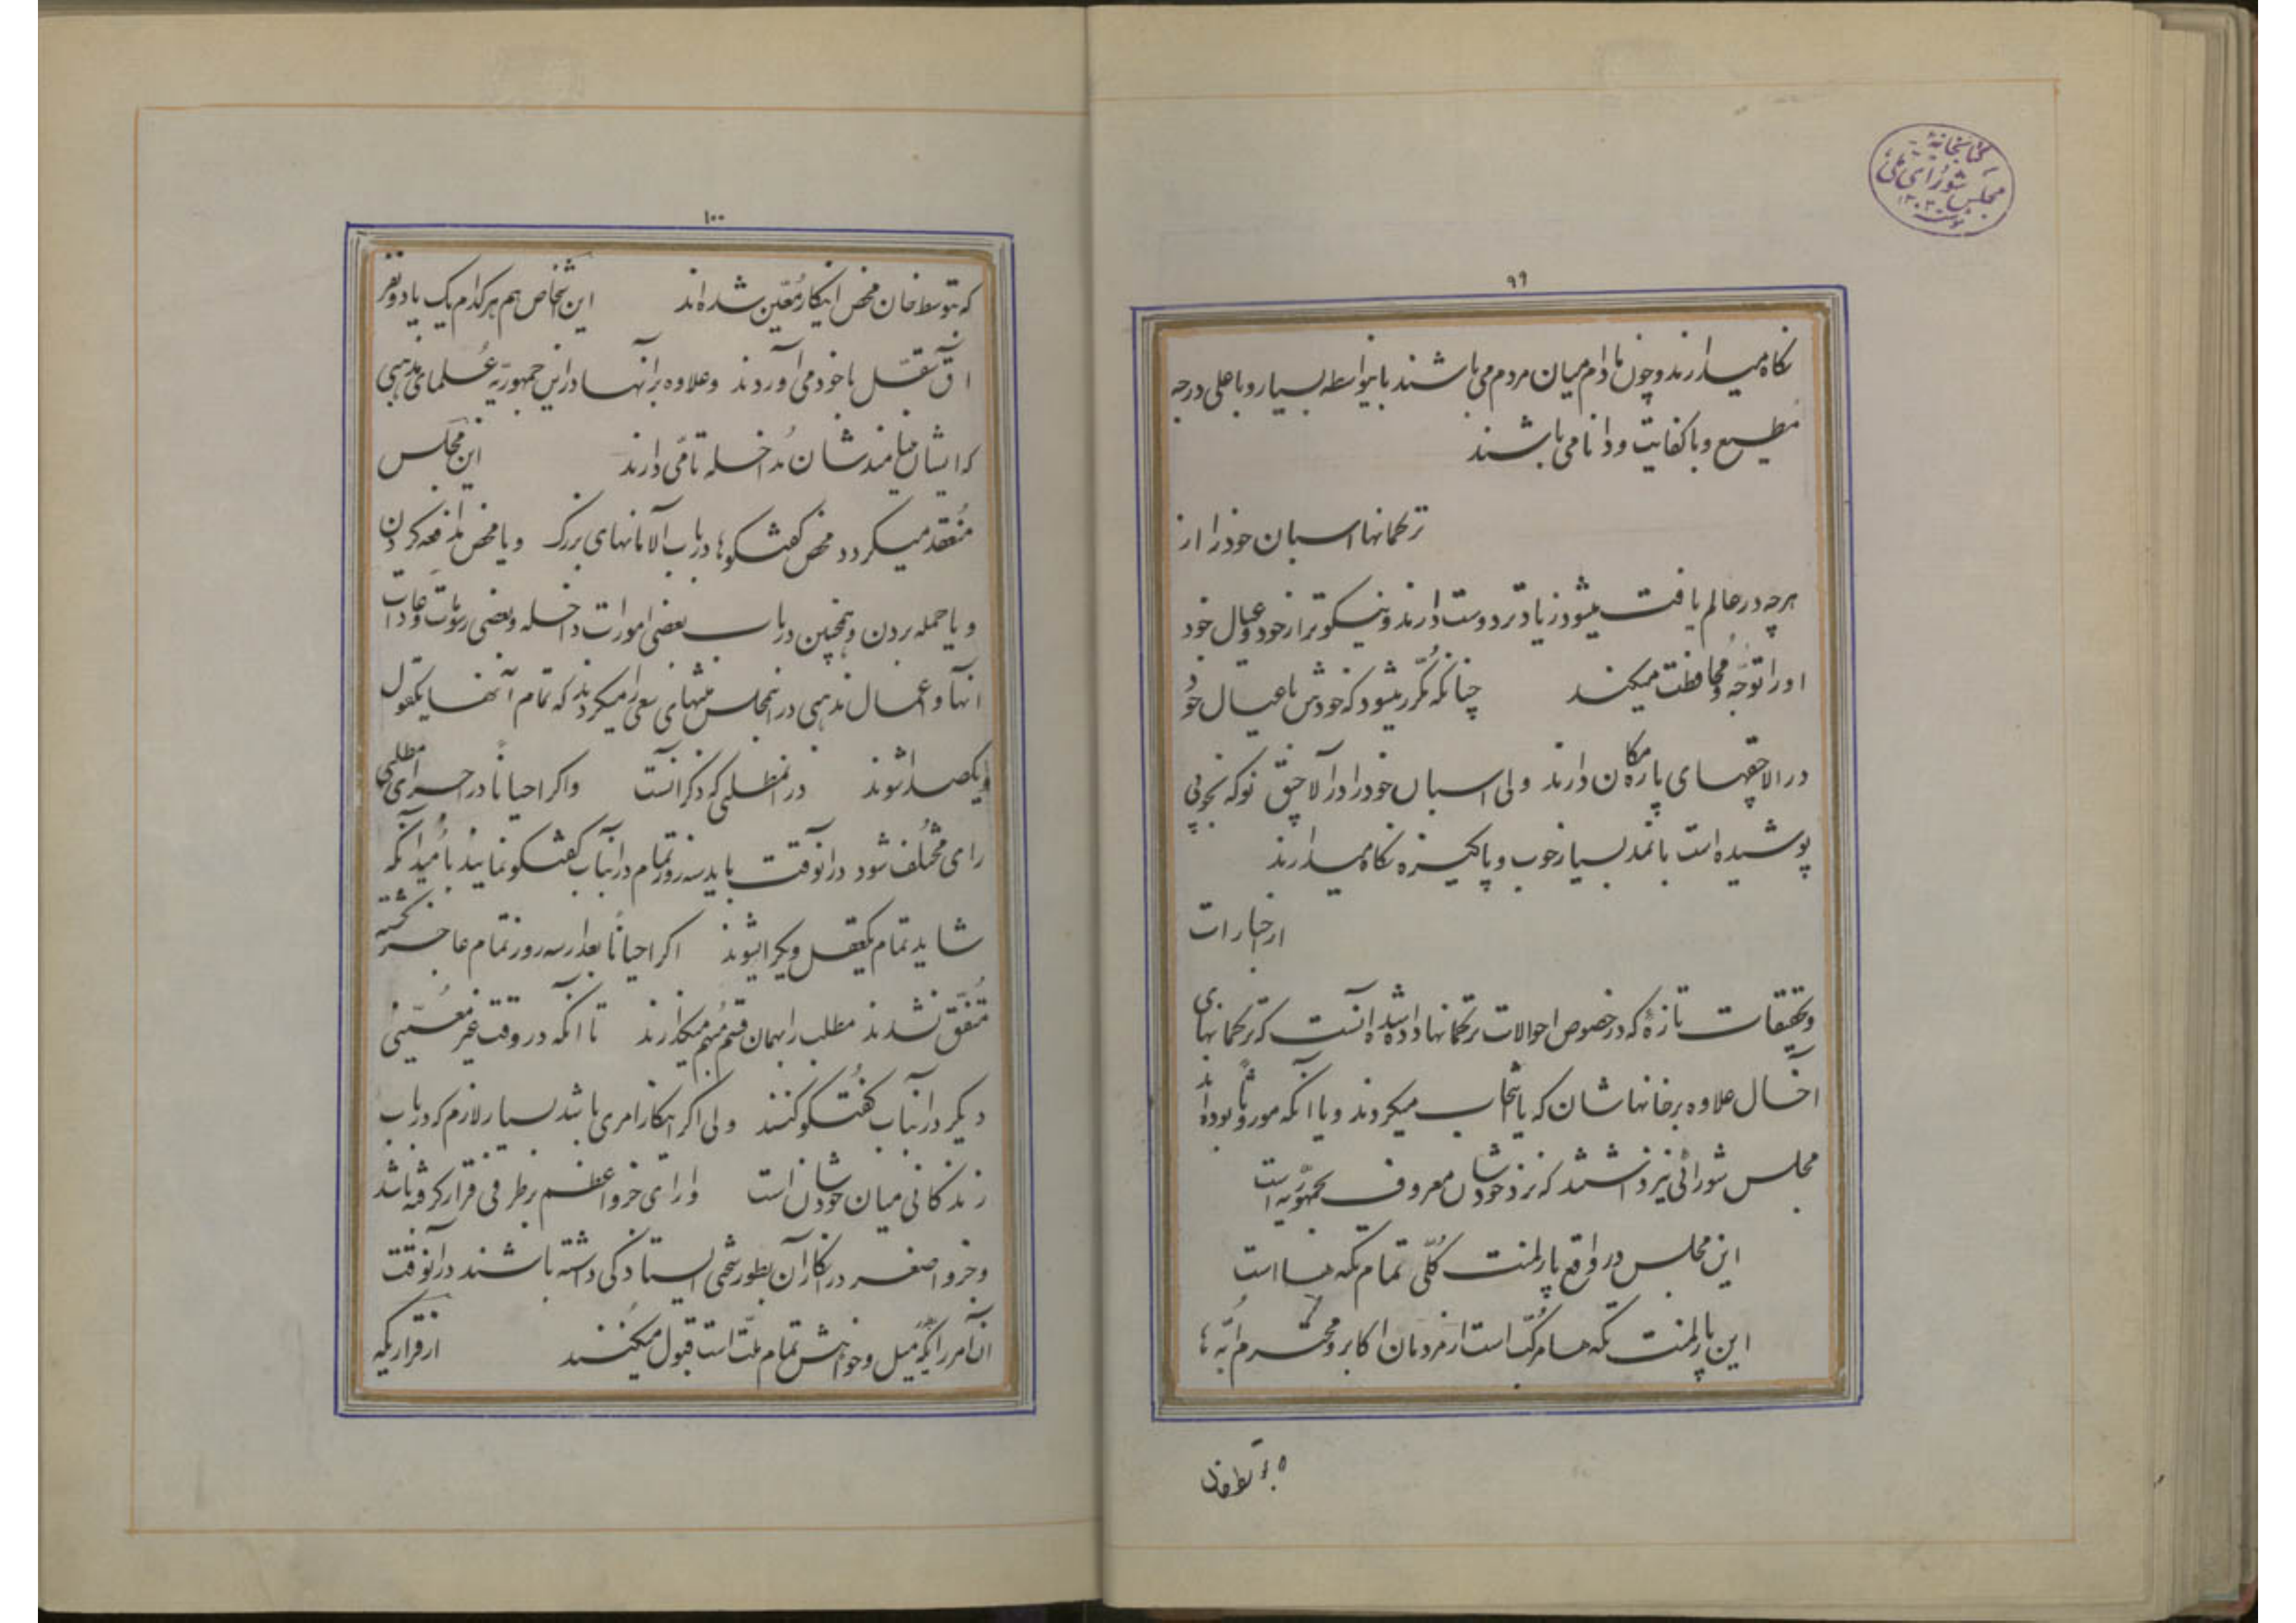 کتابخانهٔ
مجلس شورای ملی
۹۹
نگاه میدارند و چون مادام میان مردم می باشند باینواسطه بسیار و باعلی درجه
مطیع و با کفایت و دانا می باشند
ترکمانها اسبان خود را از
هرچه در عالم یافت میشود زیادتر دوست دارند و نیکوتر از خود و عیال خود
او را توجّه و محافظت میکنند چنانکه مکرّر میشود که خودش با عیال خود
در الاچقهای پاره مکان دارند ولی اسبان خود را در آلاچق نو که بخوبی
پوشیده است با نمد بسیار خوب و پاکیزه نگاه میدارند
از اخبارات
و تحقیقات تازهٔ که در خصوص احوالات ترکمانها داده شده آنست که ترکمانهای
آخال علاوه بر خانهاشان که یا انتخاب میکردند و یا آنکه موروثاً بوده اند
مجلس شورائی نیز داشتند که نزد خودشان معروف بجمهوریه است
این مجلس در واقع پارلمنت کلّی تمام تکه هااست
این پارلمنت تکه ها مرکّب است از مردمان اکابر و محترم
۱۰۰
که بتوسط خان محض اینکار معیّن شده اند این اشخاص هم هرکدام یک یا دو نفر
آق سقّل با خود می آوردند و علاوه بر آنها در این جمهوریّه علمای مذهبی
که ایشان مینامندشان مُداخله تامّی دارند این مجلس
مُنعقد میکردد محض کفتگوها در باب آلامانهای بزرگ و یا محض مدافعه کردن
و یا حمله بردن و همچنین در باب بعضی امورات داخله و بعضی رسومات و عادات
آنها و اعمال مذهبی در اینمجلس منتهای سعی را میکردند که تمام آنها یکقول
و یکصدا شوند در آنمطلبی که ذکر آنست و اکر احیاناً در اجرای مطلبی
رای مختلف شود در آنوقت باید سه روز تمام در آنباب کفتگو نمایند باُمید آنکه
شاید تمام یکعقل و یکرا شوند اکر احیاناً بعد از سه روز تمام عاجز کشته
متّفق نشدند مطلب را بهمان قسم مبهم میکذارند تا آنکه در وقت غیر معیّنی
دیکر در آنباب کفتگو کنند ولی اکر اینکار امری باشد بسیار لازم که در باب
زندکانی میان خودشان است و ارای جزو اعظم بر طرفی قرار کرفته باشد
و جزو اصغر در انکار آن بطور سختی ایستادکی داشته باشند در آنوقت
آن امر را که میل و خواهش تمام ملّت است قبول میکنند از قراریکه